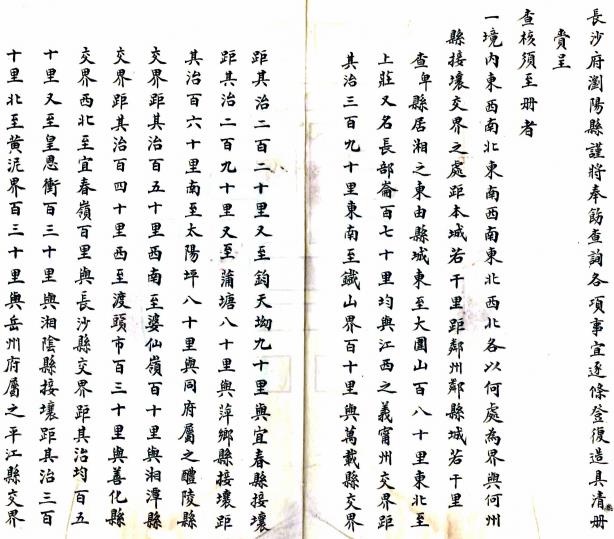 長沙府瀏陽縣謹將奉飭查詢各項事宜逐條登復造具清冊
賫呈
查核須至冊者
一境內東西南北東南西南東北西北各以何處為界與何州
縣接壤交界之處距本城若干里距鄰州鄰縣城若干里
查卑縣居湘之東由縣城東至大圍山百八十里東北至
上莊又名長部崙百七十里均與江西之義甯州交界距
其治三百九十里東南至鐵山界百十里與萬載縣交界
距其治二百二十里又至鈞天坳九十里與宜春縣接壤
距其治二百九十里又至蒲塘八十里與萍鄉縣接壤距
其治百六十里南至太陽坪八十里與同府屬之醴陵縣
交界距其治百五十里西南至婆仙嶺百十里與湘潭縣
交界距其治百四十里西至渡頭市百三十里與善化縣
交界西北至宜春嶺百里與長沙縣交界距其治均百五
十里又至皇恩衝百三十里與湘陰縣接壤距其治三百
十里北至黃泥界百三十里與岳州府屬之平江縣交界